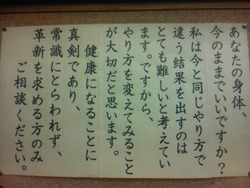 あなたの身体、
今のままでいいですか？
私は今と同じやり方で
違う結果を出すのは
とても難しいと考えてい
ます。ですから、
やり方を変えてみること
が大切だと思います。
健康になることに
真剣であり、
常識にとらわれず、
革新を求める方のみ
ご相談ください。